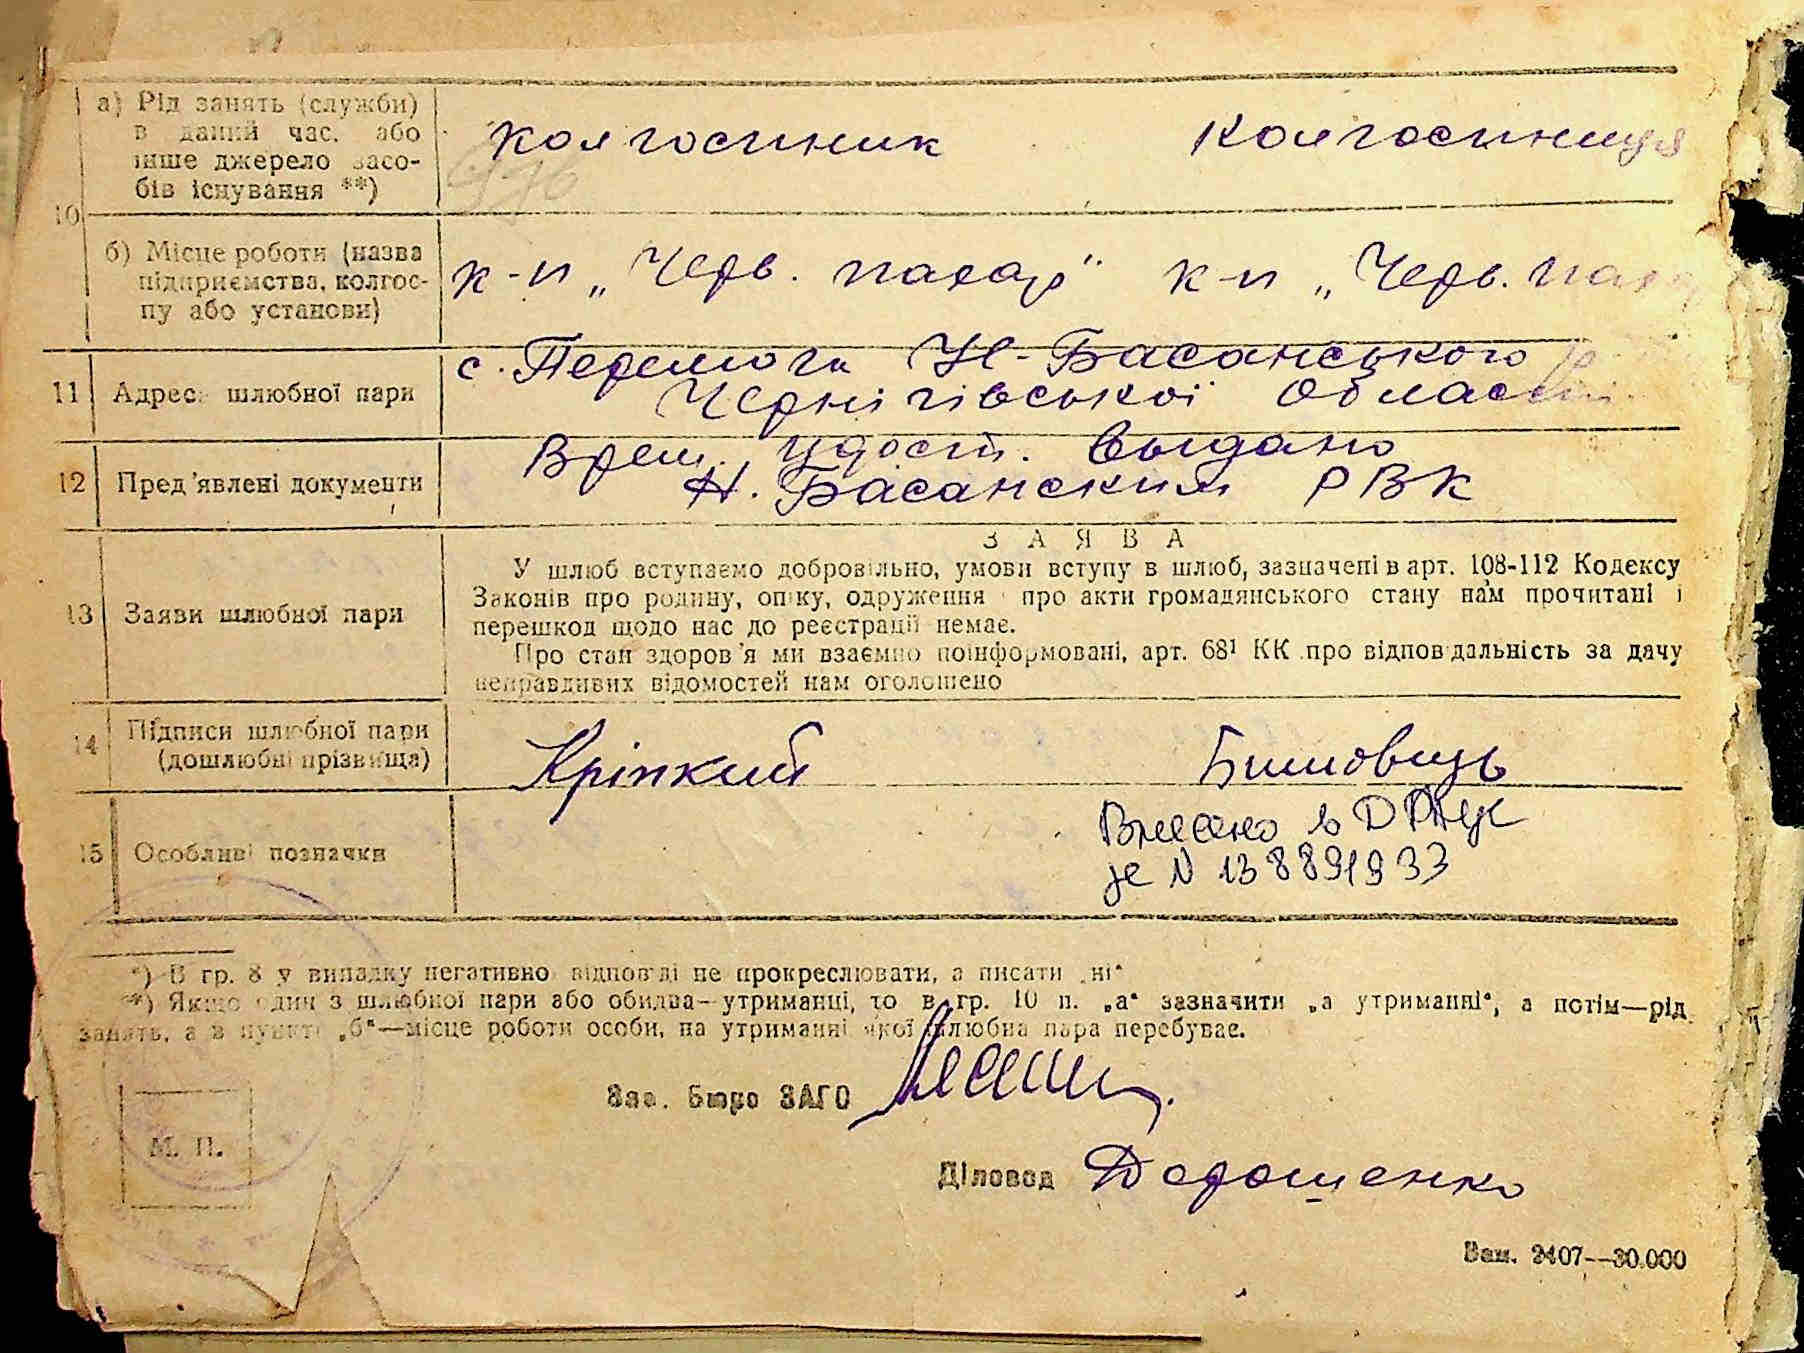 10
а) Рід занять (служби)
в даний час. або
інше джерело засо-
бів існування **)
колгоспник колгоспниця
б) Місце роботи (назва
підприємства, колгос-
пу або установи)
к-п „Черв. пахар" к-п „Черв.
11 Адреса шлюбної пари
с. Перемога Н-Басанського р
Чернігівської області
12 Пред'явлені документи
Врем. удост. выдано
Н. Басанским РВК
13 Заяви шлюбної пари
ЗАЯВА
У шлюб вступаємо добровільно, умови вступу в шлюб, зазначені в арт. 108-112 Кодексу
Законів про родину, опіку, одруження і про акти громадянського стану нам прочитані і
перешкод щодо нас до реєстрації немає.
Про стан здоров'я ми взаємно поінформовані, арт. 68¹ КК про відповідальність за дачу
неправдивих відомостей нам оголошено
14 Підписи шлюбної пари
(дошлюбні прізвища)
Кріпкий
15 Особливі позначки
Внесено в ДРАЦС
№ 138891933
*) В гр. 8 у випадку негативної відповіді не прокреслювати, а писати „ні"
**) Якщо один з шлюбної пари або обидва—утриманці, то в гр. 10 п. „а" зазначити „а утриманні", а потім—рід
занять, а в пункті „б"—місце роботи особи, на утриманні якої шлюбна пара перебуває.
Зав. Бюро ЗАГС
М. П.
Діловод Дорошенко
Зам. 2407—30.000